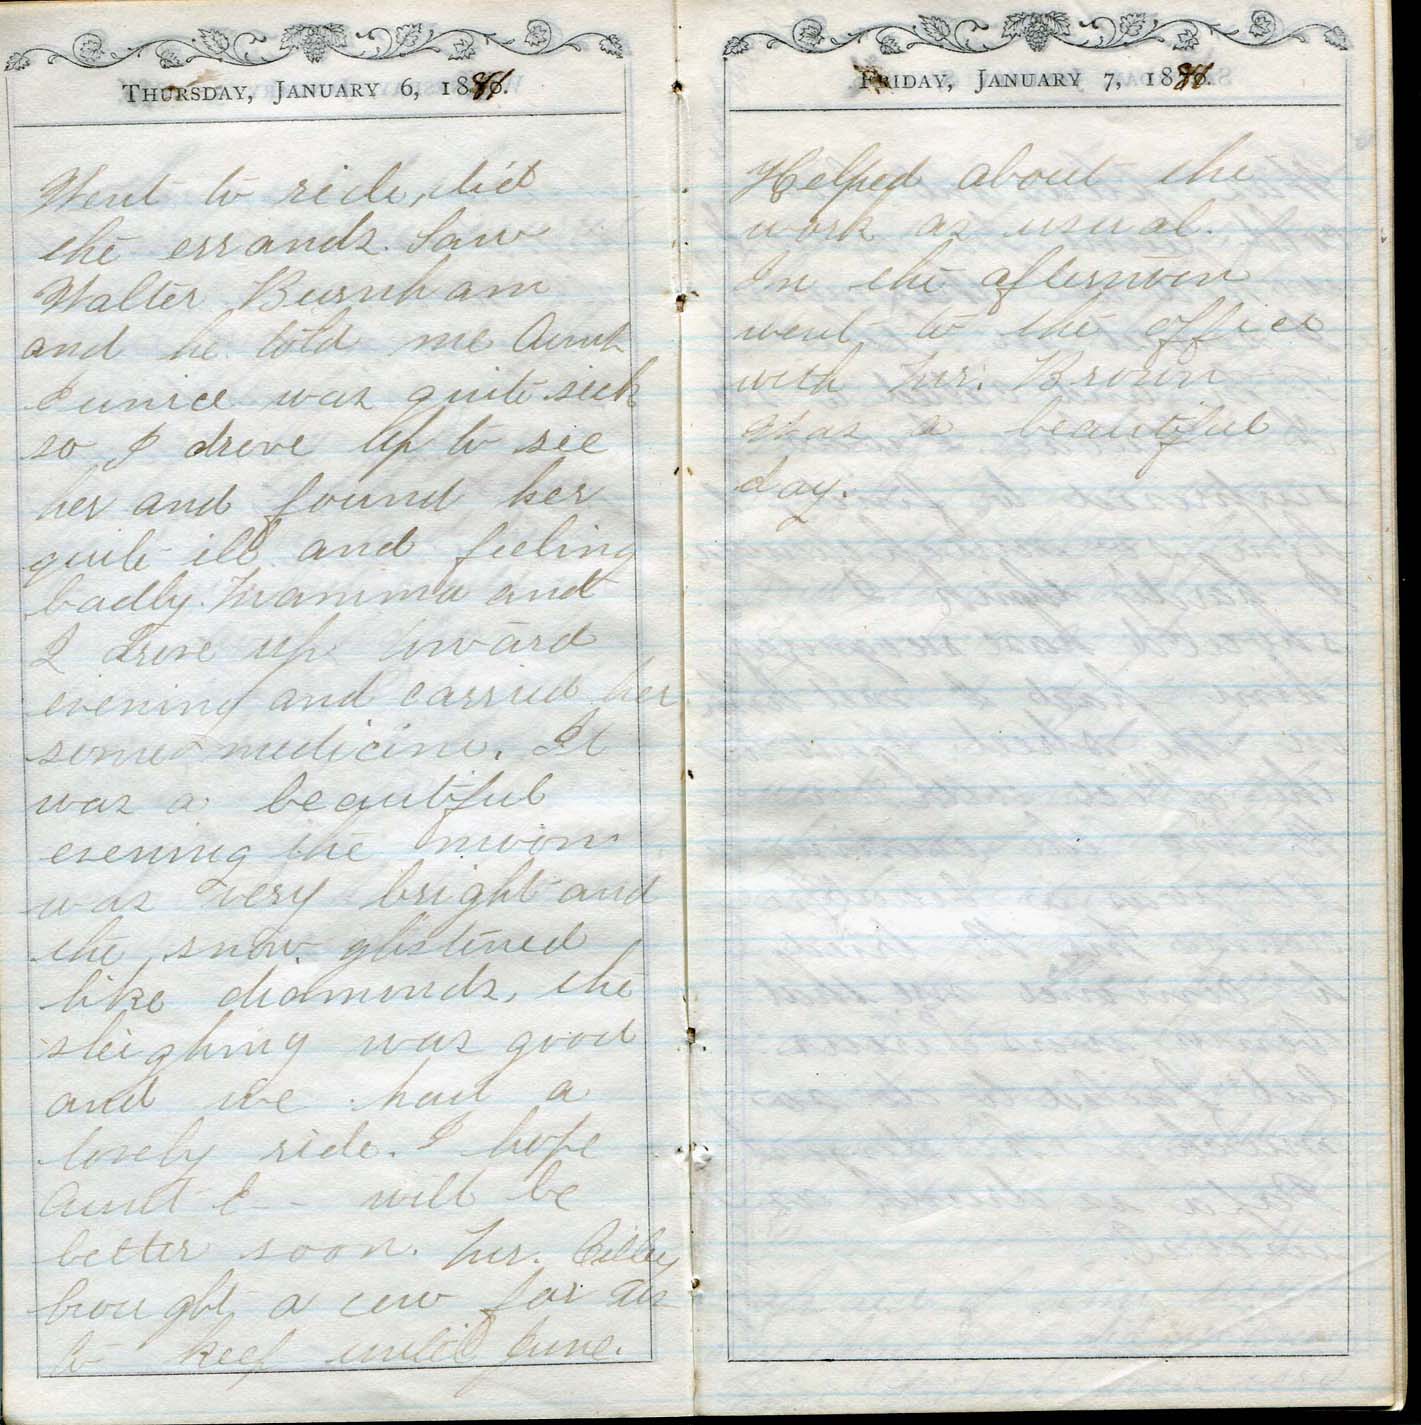 THURSDAY, JANUARY 6, 1881.
Went to ride, did
the errands. Saw
Walter Burnham
and he told me Aunt
Eunice was quite sick
so I drove up to see
her and found her
quite ill and feeling
badly. Mamma and
I drove up toward
evening and carried her
some medicine. It
was a beautiful
evening the moon
was very bright and
the snow glistened
like diamonds, the
sleighing was good
and we had a
lovely ride. I hope
Aunt E— will be
better soon. Mr. Cilley
brought a cow for us
to keep until June.
FRIDAY, JANUARY 7, 1881.
Helped about the
work as usual.
In the afternoon
went to the office
with Mr. Brown
Was a beautiful
day.